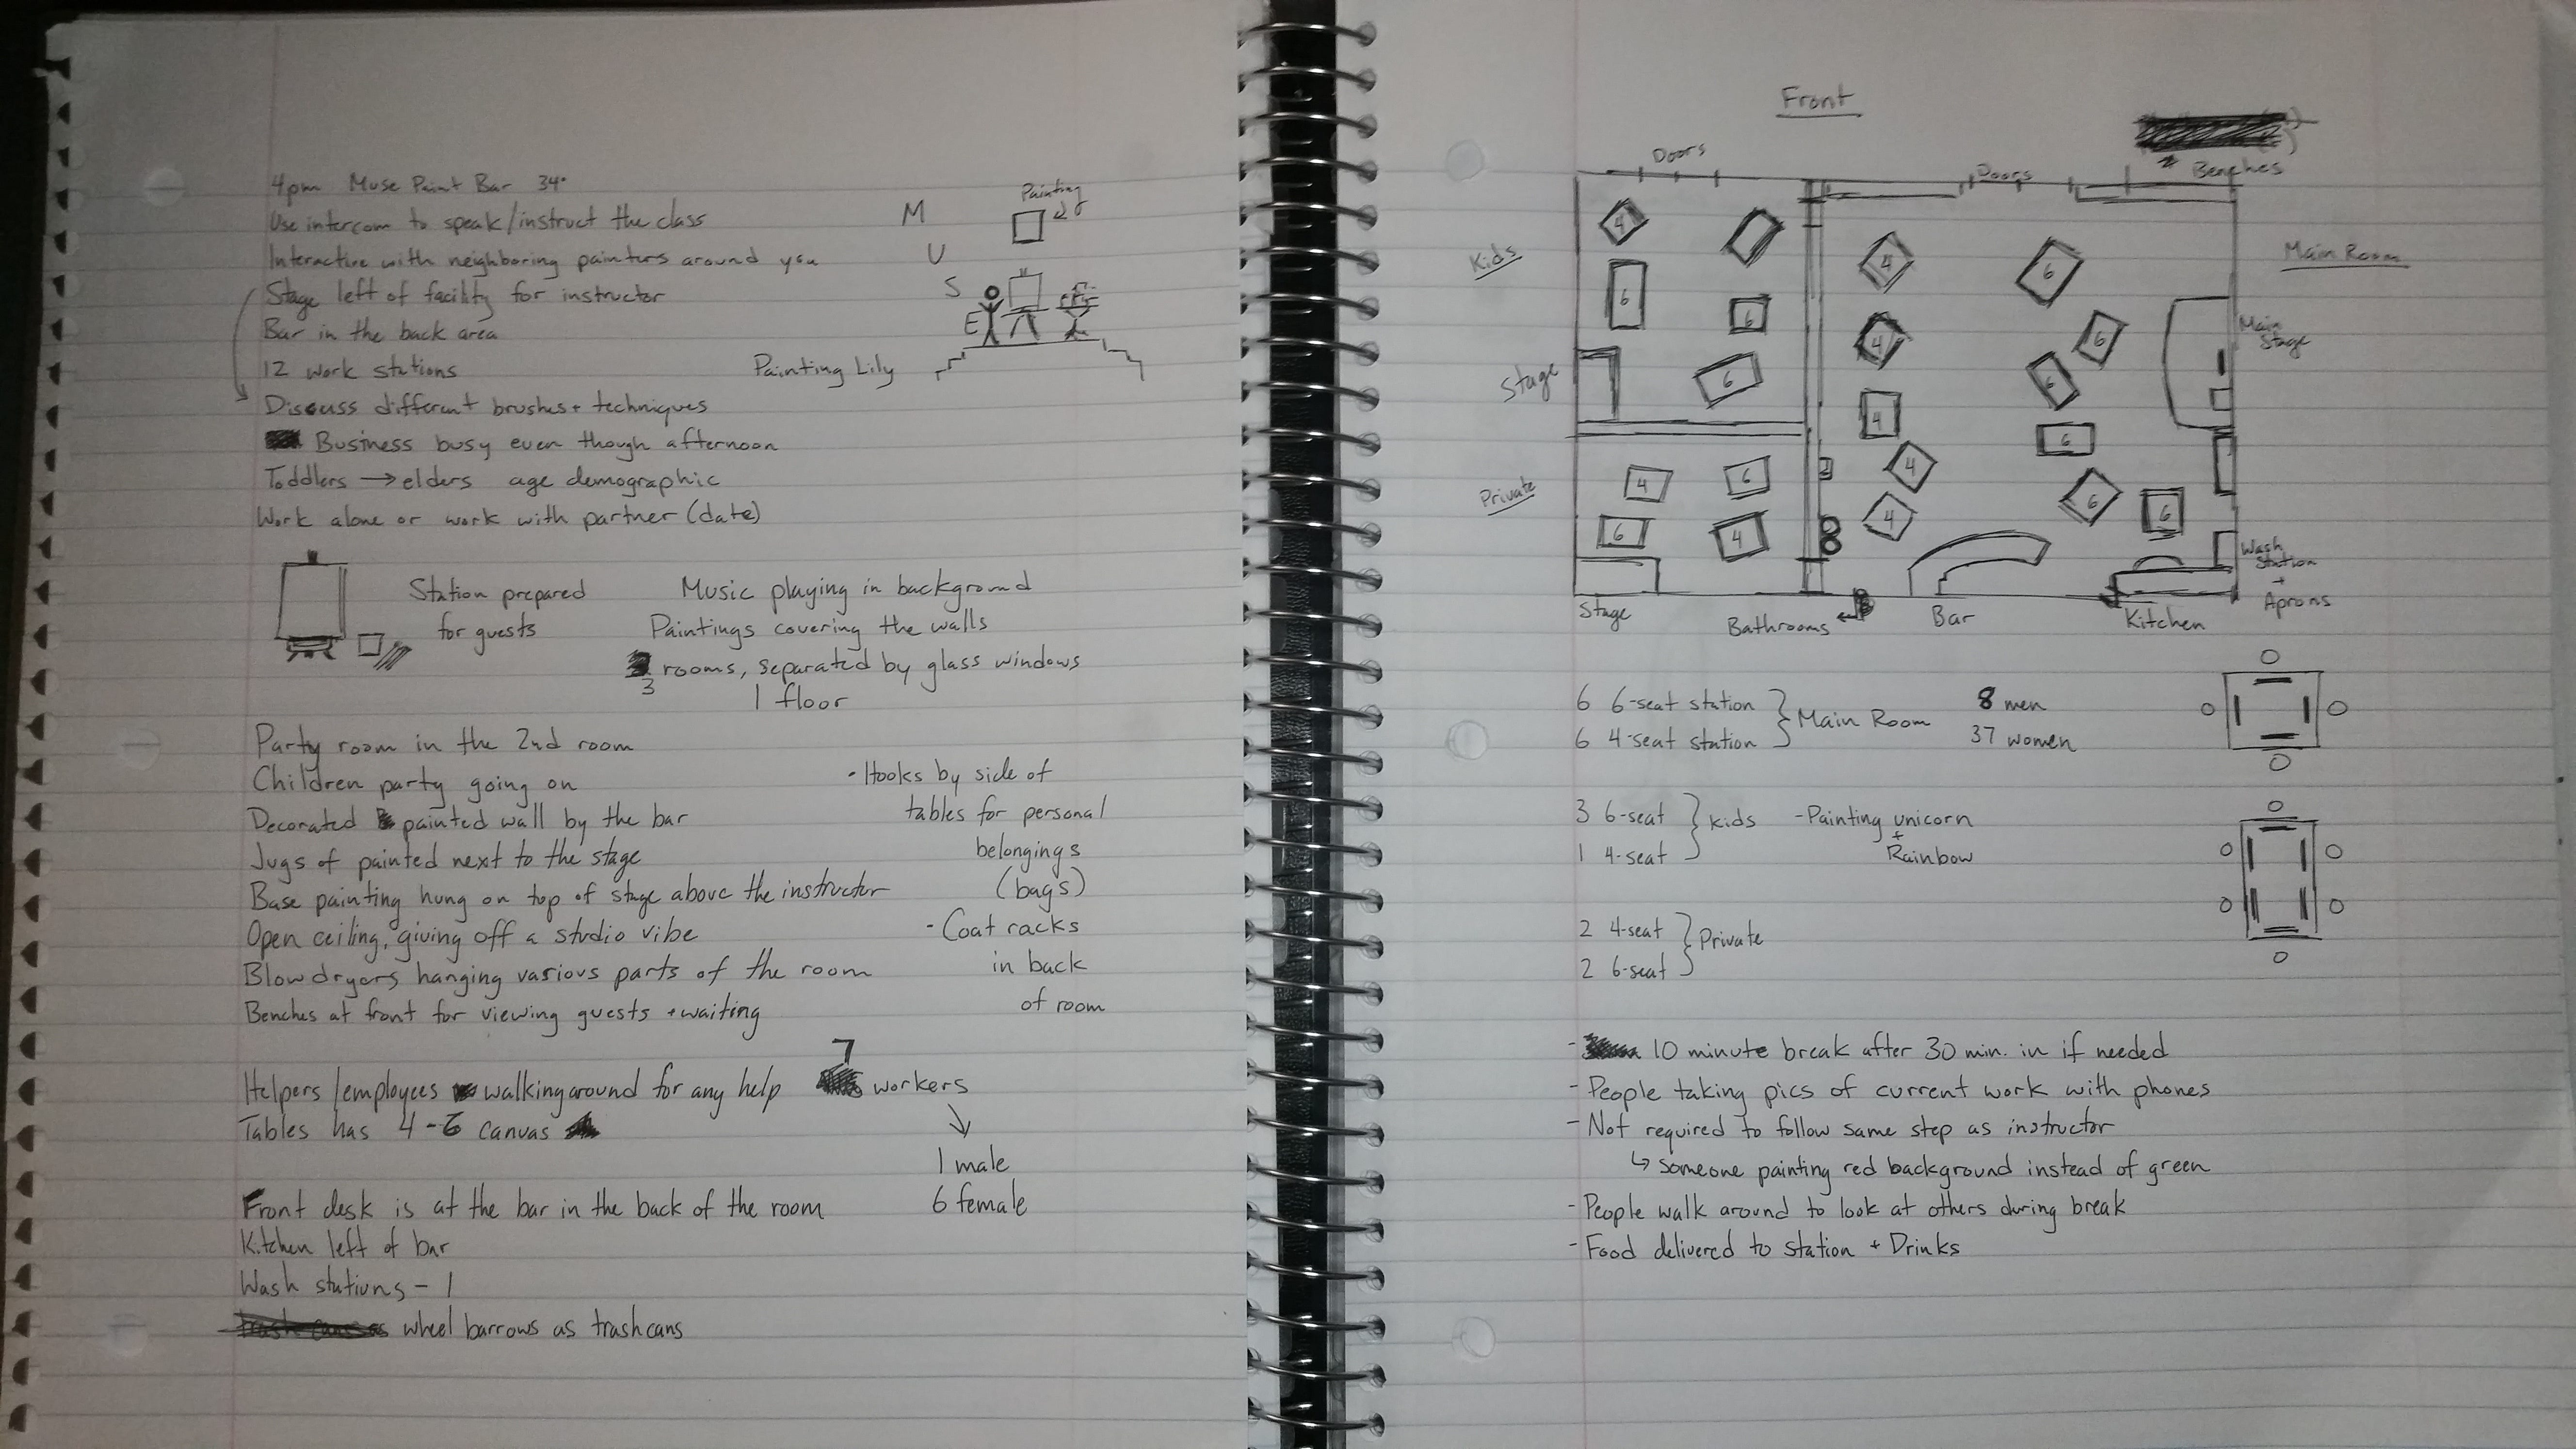 4pm Muse Paint Bar 34°
Use intercom to speak/instruct the class
Interactive with neighboring painters around you
Stage left of facility for instructor
Bar in the back area
12 work stations
Discuss different brushes + techniques
Business busy even though afternoon
Toddlers → elders age demographic
Work alone or work with partner (date)
M
U
S
E
Painting
Painting Lily
Station prepared
for guests
Music playing in background
Paintings covering the walls
3 rooms, separated by glass windows
1 floor
Party room in the 2nd room
Children party going on
Decorated painted wall by the bar
Jugs of painted next to the stage
Base painting hung on top of stage above the instructor
Open ceiling, giving off a studio vibe
Blowdryers hanging various parts of the room
Benches at front for viewing guests + waiting
- Hooks by side of
tables for personal
belongings
(bags)
- Coat racks
in back
of room
Helpers/employees walking around for any help
7 workers
↓
1 male
6 female
Tables has 4-6 canvas
Front desk is at the bar in the back of the room
Kitchen left of bar
Wash stations - 1
wheel barrows as trashcans
Front
Doors
Doors
* Benches
Kids
Main Room
Stage
Private
4
6
6
6
4
6
6
4
4
6
4
6
4
6
6
4
4
6
6
Main
Stage
Wash
Station
+
Aprons
Stage
Bathrooms ←
Bar
Kitchen
6 6-seat station
6 4-seat station
} Main Room
8 men
37 women
3 6-seat
1 4-seat
} Kids
- Painting unicorn
+
Rainbow
2 4-seat
2 6-seat
} Private
- 10 minute break after 30 min. in if needed
- People taking pics of current work with phones
- Not required to follow same step as instructor
↳ someone painting red background instead of green
- People walk around to look at others during break
- Food delivered to station + Drinks